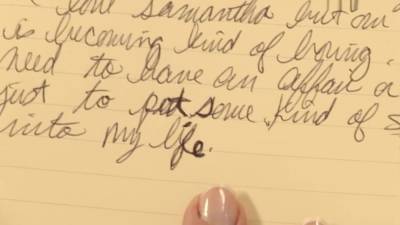 love Samantha but our
is becoming kind of boring.
need to have an affair
just to put some kind of
into my life.